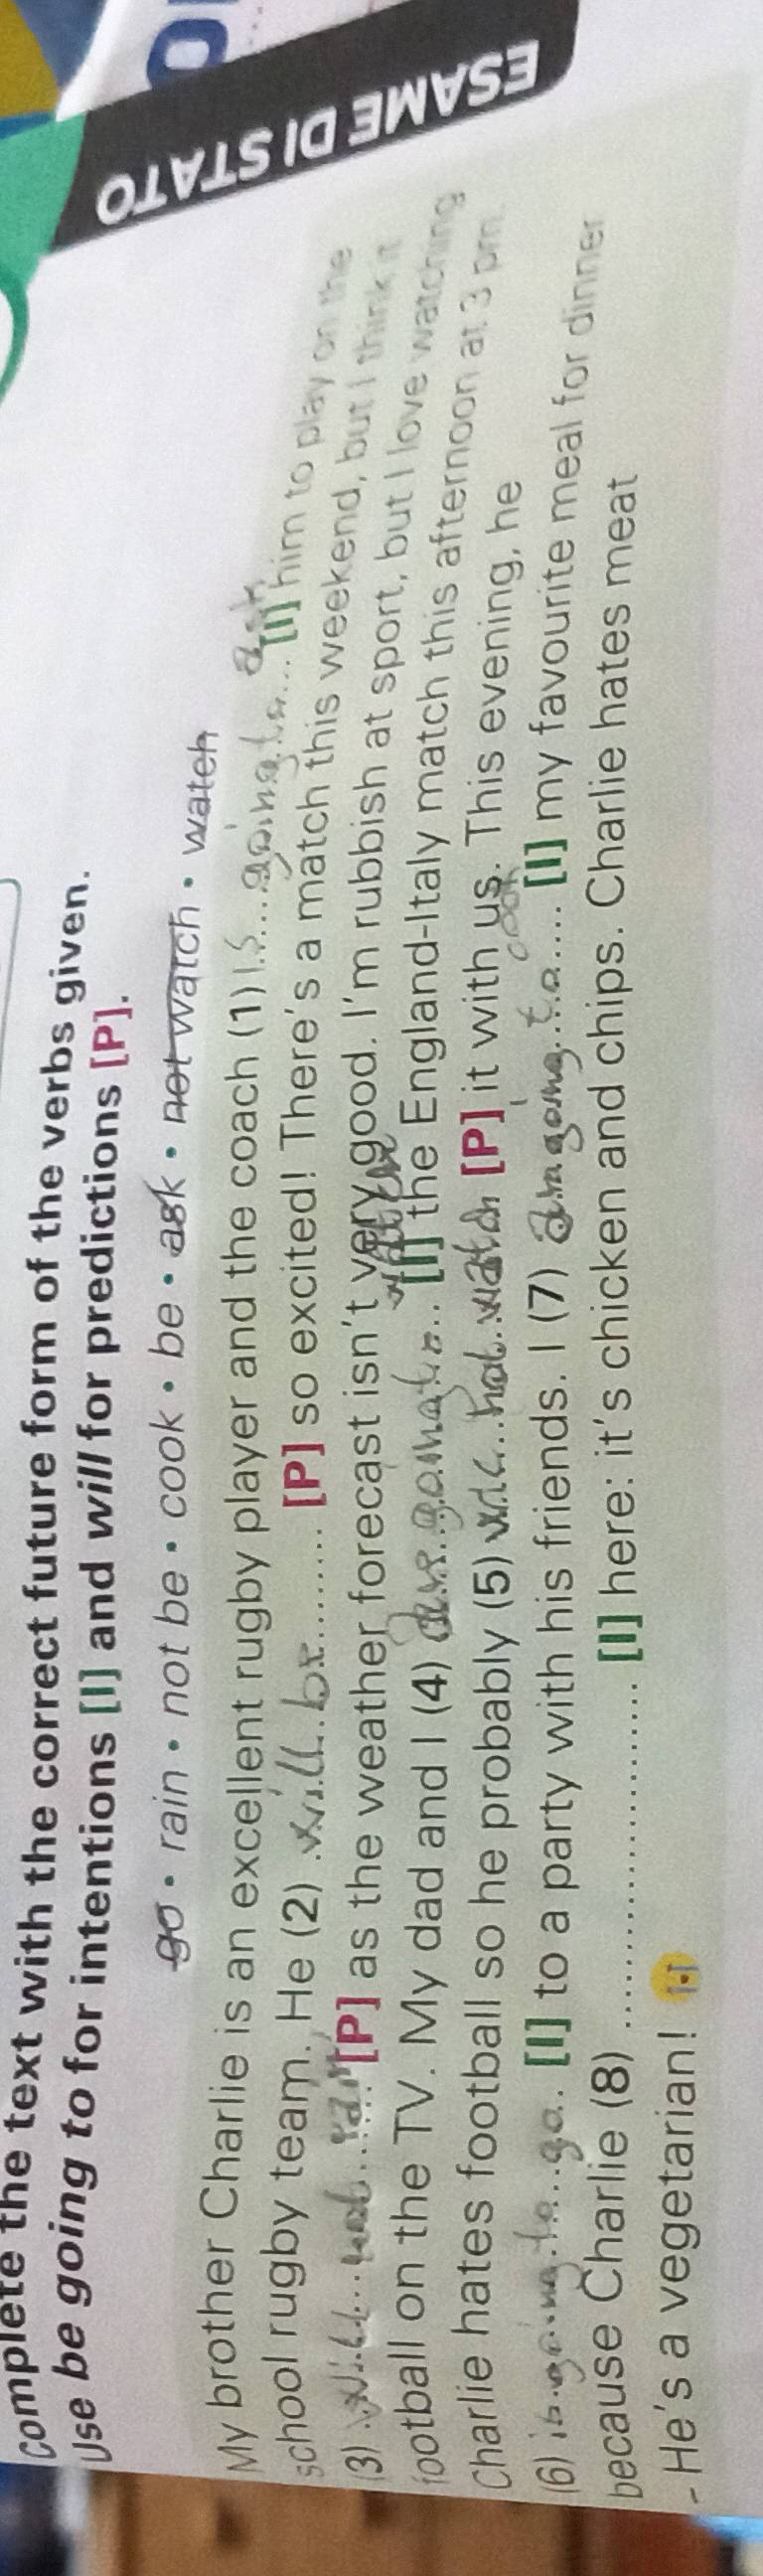 Complete the text with the correct future form of the verbs given.
Use be going to for intentions [I] and will for predictions [P].
go • rain • not be • cook • be • ask • not watch • watch
My brother Charlie is an excellent rugby player and the coach (1) is going to ask [I] him to play on the
school rugby team. He (2) will be [P] so excited! There's a match this weekend, but I think it
(3) will not rain [P] as the weather forecast isn't very good. I'm rubbish at sport, but I love watching
football on the TV. My dad and I (4) are going to watch [I] the England-Italy match this afternoon at 3 pm.
Charlie hates football so he probably (5) not watch [P] it with us. This evening, he
(6) is going to go [I] to a party with his friends. I (7) am going to cook [I] my favourite meal for dinner
because Charlie (8) .................... [I] here: it's chicken and chips. Charlie hates meat
- He's a vegetarian!
ESAME DI STATO